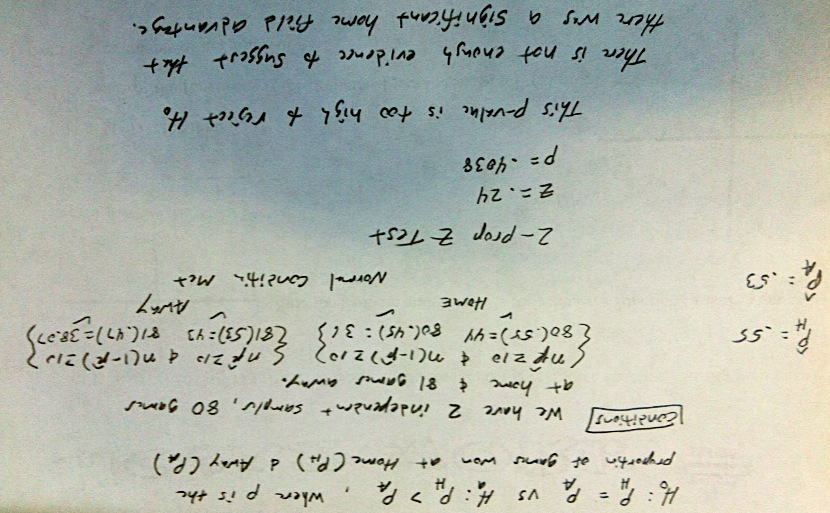 H₀: P_H = P_A vs Hₐ: P_H > P_A, where p is the
proportin of games won at Home (P_H) & Away (P_A)
Conditions We have 2 indepenent sampls, 80 games
at home & 81 games away.
P̂_H = .55
{np̂ ≥ 10 & n(1-p̂) ≥ 10} {np̂ ≥ 10 & n(1-p̂) ≥ 10}
{80(.55) = 44 80(.45) = 36} {81(.53) = 43 81(.47) = 38.07}
HOME AWAY
P̂_A = .53
Normal Conditin Met
2-prop Z Test
Z = .24
p = .4038
This p-value is too high to reject H₀
There is not enough evidence to suggest that
there was a significant home field advantage.